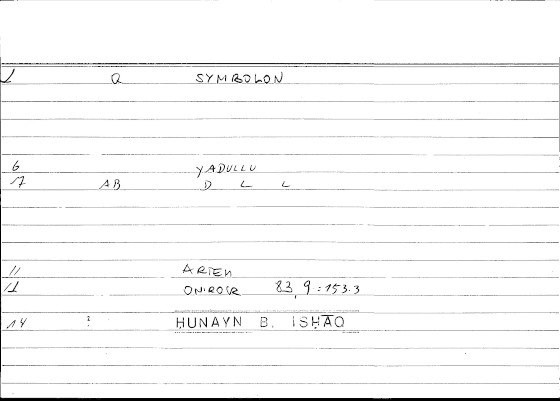 1 Q SYMBOLON
6 YADULLU
7 AB D L L
11 ARTEM
12 ONIROCR 83, 9 : 153.3
14 : ḤUNAYN B. ISḤĀQ